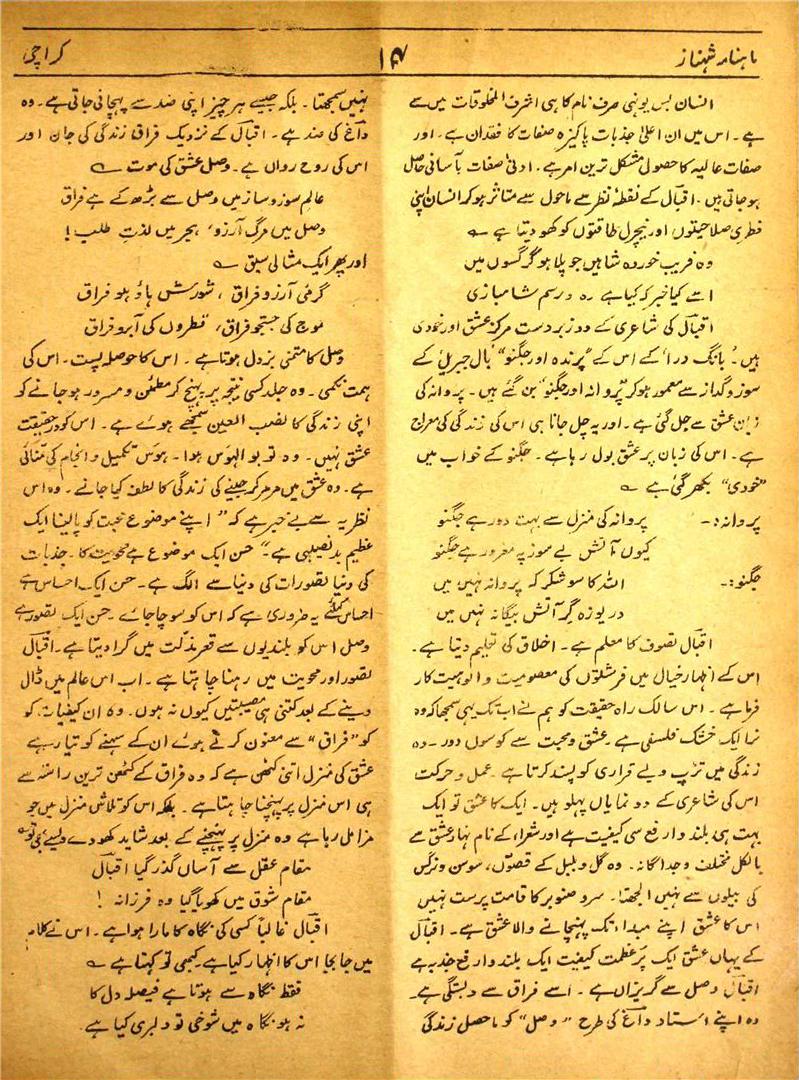 ماہنامہ شہناز
۱۴
کراچی
انسان بس یونہی صرف نام کا ہی اشرف المخلوقات میں سے
ہے۔ اس میں ان اعلیٰ جذبات پاکیزہ صفات کا فقدان ہے۔ اور
صفات عالیہ کا حصول مشکل ترین امر ہے۔ ادنیٰ صفات بآسانی حاصل
ہو جاتی ہیں۔ اقبال کے نقطۂ نظر سے ماحول سے متاثر ہو کر انسان اپنی
فطری صلاحیتوں اور نیچرل طاقتوں کو کھو دیتا ہے ؎
وہ فریب خوردہ شاہیں جو پلا ہو گرگسوں میں
اسے کیا خبر کہ کیا ہے رہ و رسم شاہبازی
اقبال کی شاعری کے دو زبردست مرکز عشق اور خودی
ہیں۔ بانگ درا کے اس کے "پرندہ اور جگنو" بال جبریل کے
سوز و گداز سے معمور ہو کر "پروانہ اور جگنو" بن گئے ہیں۔ پروانہ کی
زبان عشق سے جل گئی ہے۔ اور یہ جل جانا ہی اس کی زندگی کی معراج
ہے۔ اس کی زبان پر عشق بول رہا ہے۔ جگنو کے خواب میں
"خودی" بکھر گئی ہے ؎
پروانہ:۔ پروانہ کی منزل سے بہت دور ہے جگنو
کیوں آتش بے سوز پہ مغرور ہے جگنو
جگنو:۔ اللہ کا سو شکر کہ پروانہ نہیں میں
دریوزہ گر آتش بیگانہ نہیں میں
اقبال تصوف کا معلم ہے۔ اخلاق کی تعلیم دیتا ہے۔
اس کے اظہار خیال میں فرشتوں کی معصومیت و الوہیت کار
فرما ہے۔ اس سالک راہ حقیقت کو ہم نے اب تک یہی سمجھا کہ وہ
نرا ایک خشک فلسفی ہے۔ عشق و محبت سے کوسوں دور۔ وہ
زندگی میں تڑپ و بے قراری کو پسند کرتا ہے۔ عمل و حرکت
اس کی شاعری کے دو نمایاں پہلو ہیں۔ ایک کا عشق تو ایک
بہت ہی بلند و ارفع سی کیفیت ہے اور شعراء کے نام نہاد عشق سے
بالکل مختلف و جداگانہ۔ وہ گل و بلبل کے قصوں، سوسن و نرگس
کی بیلوں سے نہیں الجھتا۔ سرو صنوبر کا قامت پرست نہیں
اس کا عشق اپنے مبداء تک پہنچانے والا عشق ہے۔ اقبال
کے یہاں عشق ایک پُر عظمت کیفیت ایک بلند و ارفع جذبہ ہے
اقبال وصل سے گریزاں ہے۔ اسے فراق سے دبستگی ہے۔
وہ اپنے استاد داغ کی طرح "وصل" کو ماحصل زندگی
نہیں سمجھتا۔ بلکہ جیسے ہر چیز اپنی ضد سے پہچانی جاتی ہے۔ وہ
داغ کی ضد ہے۔ اقبال کے نزدیک فراق زندگی کی جان اور
اس کی روح رواں ہے۔ وصل عشق کی موت ؎
عالم سوز و ساز میں وصل سے بڑھ کے ہے فراق
وصل میں مرگ آرزو، ہجر میں لذتِ طلب!
اور پھر ایک مثالی سبق ؎
گرمی آرزو فراق، شورش ہاؤ ہو فراق
موج کی جستجو فراق، قطروں کی آبرو فراق
وصل کا متمنی بزدل ہوتا ہے۔ اس کا حوصلہ پست۔ اس کی
ہمت نکمی۔ وہ جلد کسی نتیجہ پر پہنچ کر مطمئن و مسرور ہو جانے کو
اپنی زندگی کا نصب العین سمجھے ہوئے ہے۔ اس کو در حقیقت
عشق نہیں۔ وہ تو بو الہوس ہوا۔ ہوس تکمیل و انجام کی متنائی
ہے۔ وہ عشق میں مر مر کر جینے کی زندگی کا لطف کیا جانے۔ وہ اس
نظریہ سے بے خبر ہے کہ "اپنے موضوع محبت کو پالینا ایک
عظیم بدنصیبی ہے۔" حسن ایک موضوع ہے محویت کا۔ جذبات
کی دنیا تصورات کی دنیا سے الگ ہے۔ حسن ایک احساس ہے
احساس کیلئے یہ ضروری ہے کہ اس کو سوچا جاۓ۔ حسن ایک تصور ہے
وصل اس کو بلندیوں سے قعر مذلت میں گرا دیتا ہے۔ اقبال
تصور اور محویت میں رہنا چاہتا ہے۔ اب اس عالم میں ڈال
دینے کے بعد کتنی ہی مصیبتیں کیوں نہ ہوں۔ وہ ان کیفیات کو
کو "فراق" سے معنون کرتے ہوئے ان کے سہنے کو تیار ہے
عشق کی منزل اتنی کٹھن ہے کہ وہ فراق کے کٹھن ترین راستہ سے
ہی اس منزل پر پہنچنا چاہتا ہے۔ بلکہ اس کو تلاش منزل میں جو
مزا مل رہا ہے وہ منزل پر پہنچنے کے بعد شاید کھو دے ویسے بھی تو؎
مقام عقل سے آساں گذر گیا اقبال
مقام شوق میں کھویا گیا وہ فرزانہ !
اقبال غالباً کسی کی نگاہ کا مارا ہوا ہے۔ اس نے کلام
میں جا بجا اس کا اظہار کیا ہے۔ کبھی تو کہتا ہے ؎
فقط نگاہ سے ہوتا ہے فیصلہ دل کا
نہ ہو نگاہ میں شوخی تو دلبری کیا ہے